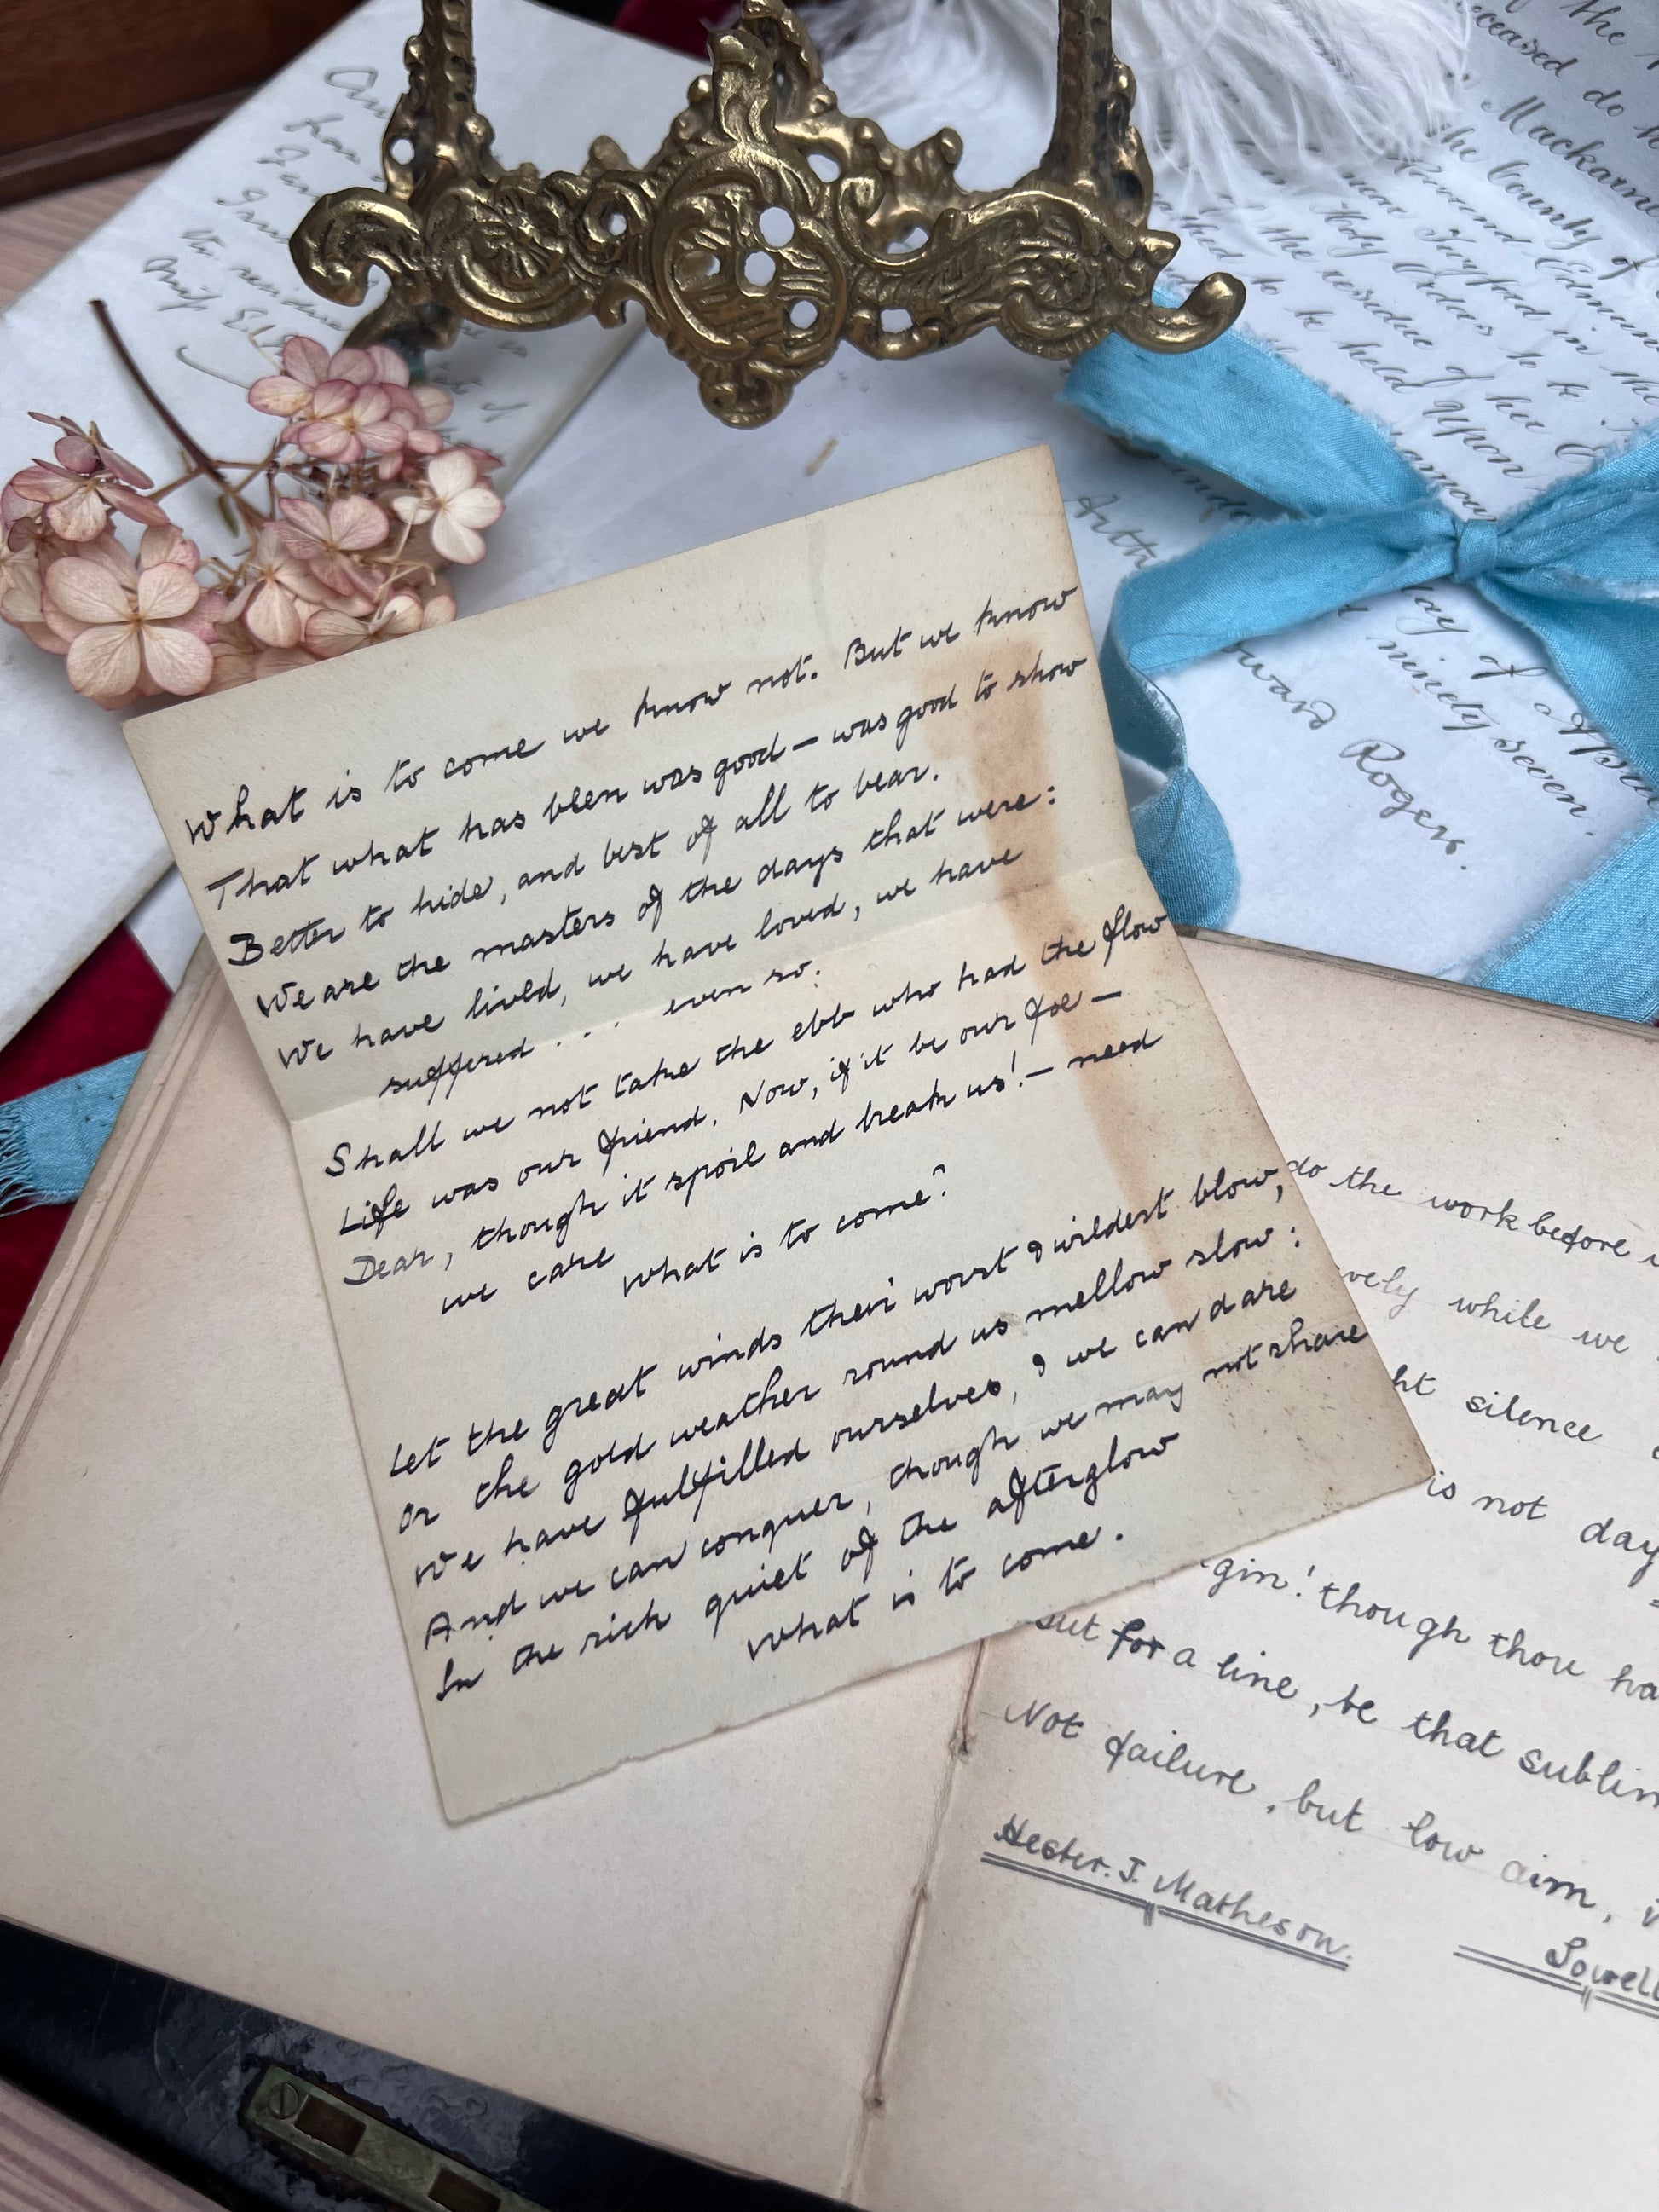 What is to come we know not. But we know
That what has been was good — was good to show
Better to hide, and best of all to bear.
We are the masters of the days that were:
We have lived, we have loved, we have
suffered . . . even so:
Shall we not take the ebb who had the flow
Life was our friend. Now, if it be our foe —
Dear, though it spoil and break us! — need
we care
What is to come?
Let the great winds their worst & wildest blow,
Or the gold weather round us mellow slow:
We have fulfilled ourselves, & we can dare
And we can conquer, though we may not share
In the rich quiet of the afterglow
What is to come.
do the work before
vely while we
ht silence
is not day
gin! though thou ha
but for a line, be that sublim
Not failure, but low aim, i
Hester. J. Matheson.
Lowell
the
ceased do
Mackarne
the County of
Reverend Edmun
Holy Orders to be
the residue of her
to be held upon
Arth
day of
d ninety seven.
oward Rogers.